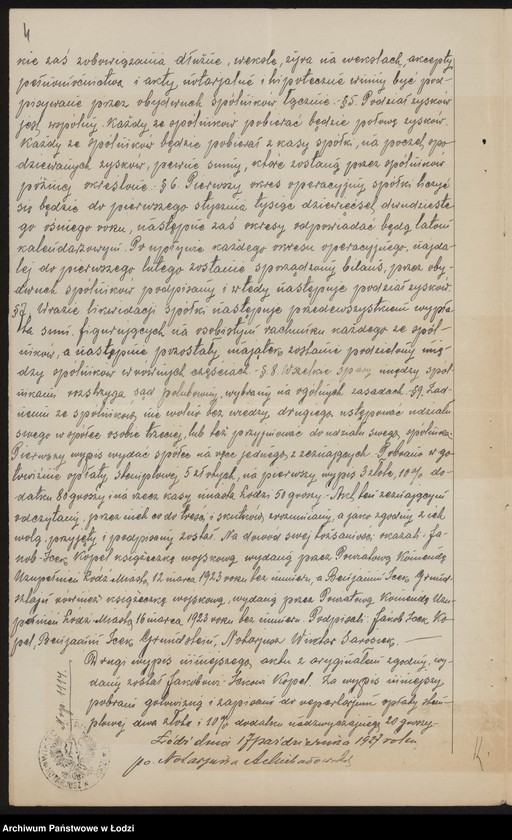 4
kie zaś zobowiązania dłużne, weksle, żyra na wekslach, akcepty,
pełnomocnictwa i akty notarjalne i hipoteczne winny być pod-
pisywane przez obydwuch spólników łącznie. §5. Podział zysków
jest wspólny. Każdy ze spólników pobierać będzie połowę zysków.
Każdy ze spólników będzie pobierał z kasy spółki, na poczet spo-
dziewanych zysków, pewne sumy, które zostaną przez spólników
później określone. §6. Pierwszy okres operacyjny spółki liczyć
się będzie do pierwszego stycznia tysiąc dziewięćset dwudzieste-
go ósmego roku, następne zaś okresy odpowiadać będą latom
kalendarzowym. Po upływie każdego okresu operacyjnego, najda-
lej do pierwszego lutego zostanie sporządzony bilans, przez oby-
dwuch spólników podpisany i wtedy następuje podział zysków.
§7. W razie likwidacji spółki następuje przedewszystkiem wypła-
ta sum, figurujących na osobistym rachunku każdego ze spól-
ników, a następnie pozostały majątek zostanie podzielony mię-
dzy spólników w równych częściach. §8. Wszelkie spory między spól-
nikami rozstrzyga sąd polubowny, wybrany na ogólnych zasadach. §9. Żad-
nemu ze spólników nie wolno bez wiedzy drugiego ustępować udziału
swego w spółce osobie trzeciej, lub też przyjmować do udziału swego spólnika.
Pierwszy wypis wydać spółce na ręce jednego z zeznających. Pobrano w go-
towiźnie opłaty stemplowej 5 złotych, na pierwszy wypis 3 złote, 10% do-
datku 80 groszy i na rzecz kasy miasta Łodzi 50 groszy. Akt ten zeznającym
odczytany, przez nich co do treści i skutków zrozumiany, a jako zgodny z ich
wolą, przyjęty i podpisany został. Na dowód swej tożsamości okazali: Ja-
kób-Icek Kopel książeczkę wojskową wydaną przez Powiatową Komendę
Uzupełnień Łódź-Miasto, 12 marca 1923 roku bez numeru, a Benjamin Icek Grund-
sztajn również książeczkę wojskową, wydaną przez Powiatową Komendę Uzu-
pełnień Łódź-Miasto 16 marca 1923 roku bez numeru. Podpisali: Jakób Icek Ko-
pel, Benjamin Icek Grundsztein, Notarjusz Wiktor Sarosiek.
Drugi wypis niniejszego aktu z oryginałem zgodny, wy-
dany został Jakóbowi-Ickowi Kopel. Za wypis niniejszy
pobrano gotowizną i zapisano do repertorjum opłaty stem-
plowej dwa złote i 10% dodatku nadzwyczajnego 20 groszy.
Łódź dnia 17 października 1927 roku.
po Notarjusza
Archiwum Państwowe w Łodzi